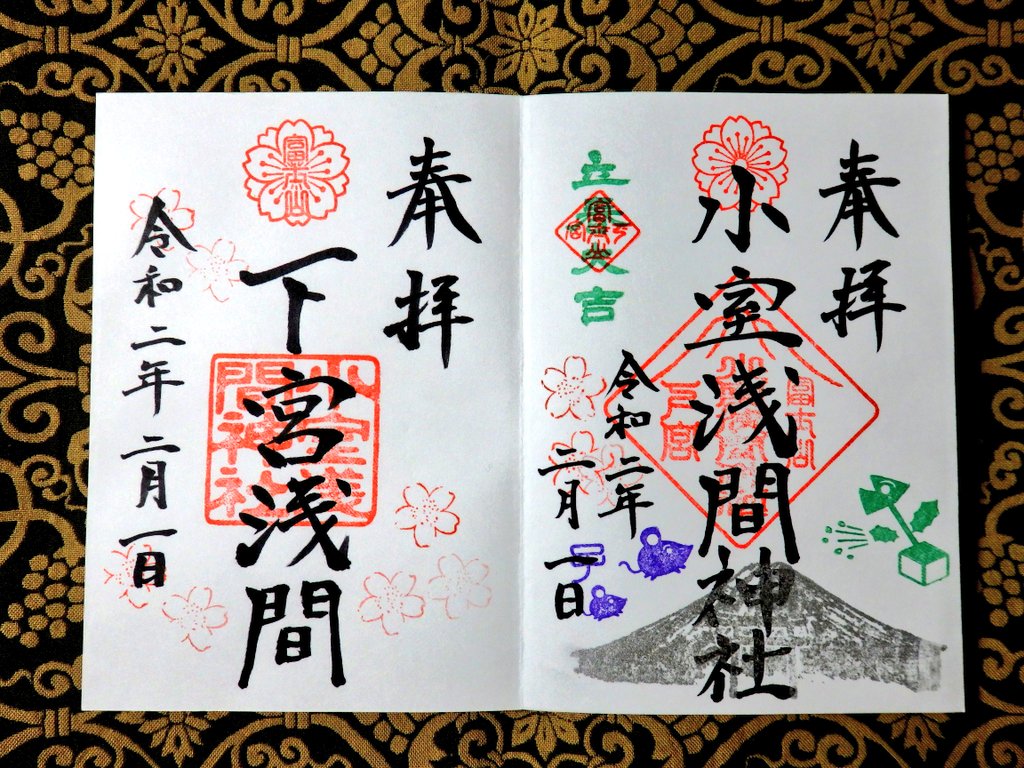 奉拝
小室浅間神社
令和二年
二月一日
立春大吉
子
富士山
下宮
奉拝
下宮浅間
令和二年二月一日
富士山
小室浅
間神社